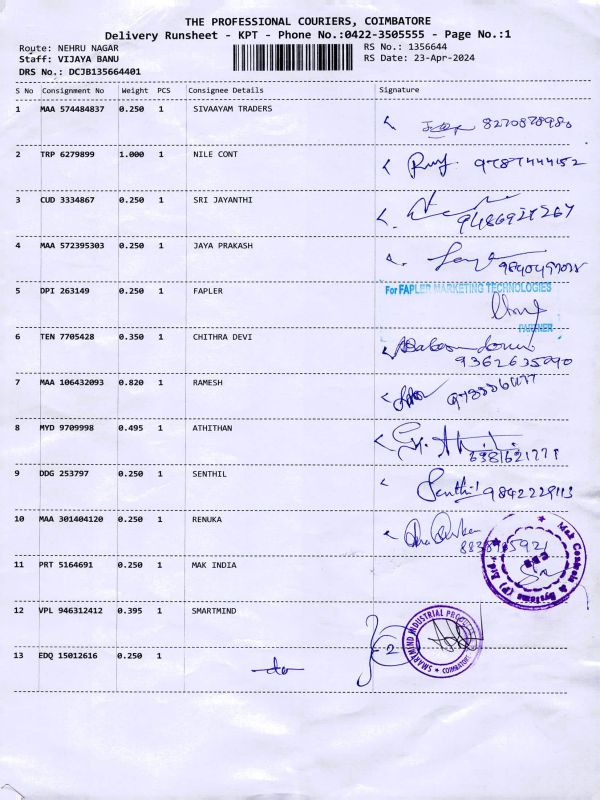 THE PROFESSIONAL COURIERS, COIMBATORE
Delivery Runsheet - KPT - Phone No.:0422-3505555 - Page No.:1
Route: NEHRU NAGAR
RS No.: 1356644
Staff: VIJAYA BANU
RS Date: 23-Apr-2024
DRS No.: DCJB135664401
S No Consignment No Weight PCS Consignee Details Signature
1 MAA 574484837 0.250 1 SIVAAYAM TRADERS
2 TRP 6279899 1.000 1 NILE CONT 9787444152
3 CUD 3334867 0.250 1 SRI JAYANTHI
4 MAA 572395303 0.250 1 JAYA PRAKASH
5 DPI 263149 0.250 1 FAPLER For FAPLER MARKETING TECHNOLOGIES
PARTNER
6 TEN 7705428 0.350 1 CHITHRA DEVI
7 MAA 106432093 0.820 1 RAMESH
8 MYD 9709998 0.495 1 ATHITHAN
9 DDG 253797 0.250 1 SENTHIL Senthil 9842229113
10 MAA 301404120 0.250 1 RENUKA
11 PRT 5164691 0.250 1 MAK INDIA Mak Controls & Systems (P)
12 VPL 946312412 0.395 1 SMARTMIND SMARTMIND INDUSTRIAL COIMBATORE
2
13 EDQ 15012616 0.250 1 do